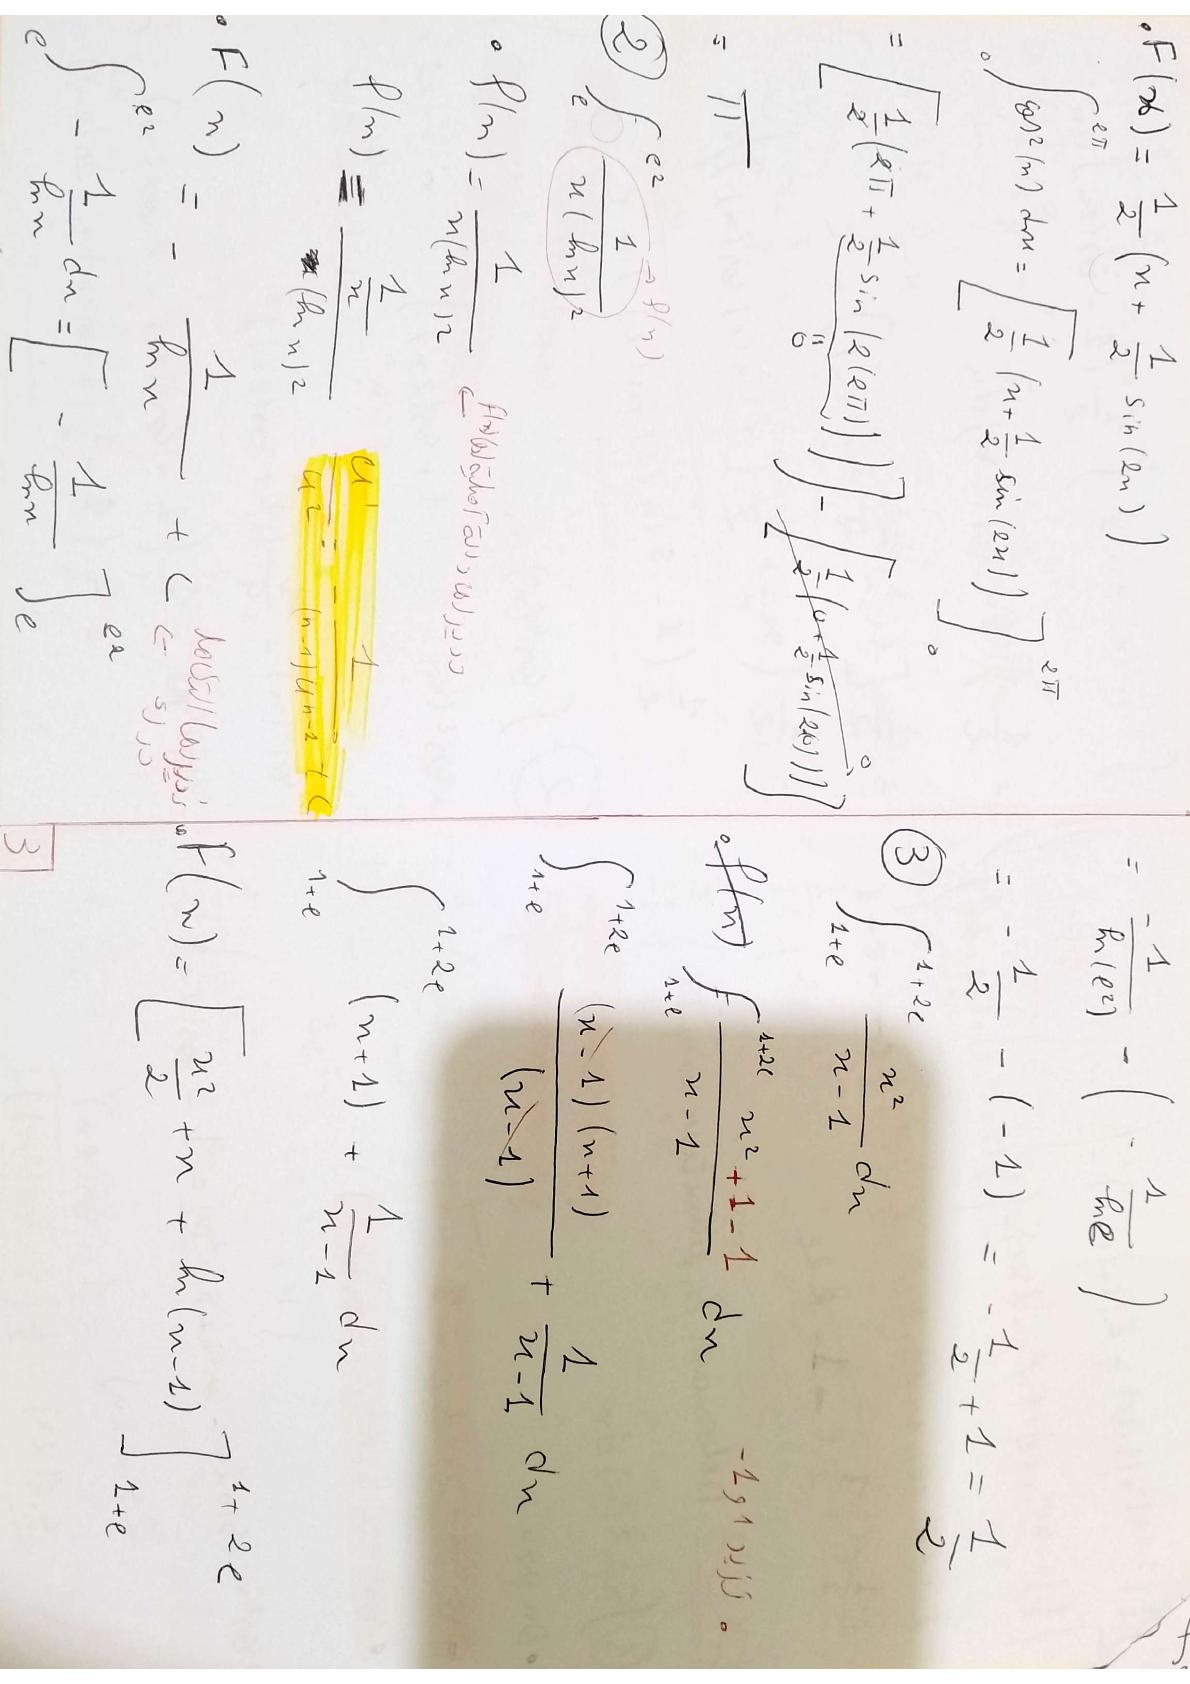 • F(x) = 1/2 (x + 1/2 sin(2x))
∫₀^{2π} cos²(x) dx = [1/2 (x + 1/2 sin(2x))]₀^{2π}
= [1/2 (2π + 1/2 sin(2(2π)))] - [1/2 (0 + 1/2 sin(2x0))]
= 0
0
= π
② ∫_e^{e²} 1/(x(ln x)²) → f(x)
• f(x) = 1/(x(ln x)²)
f(x) = (1/x)/((ln x)²)
u'/u² : - 1/((n-1)u^{n-1}) + C
• F(x) = - 1/(ln x) + C
∫_e^{e²} - 1/(ln x) dx = [- 1/(ln x)]_e^{e²}
3
= -1/(ln(e²)) - (- 1/(ln e))
= - 1/2 - (-1) = - 1/2 + 1 = 1/2
③ ∫_{1+e}^{1+2e} x²/(x-1) dx
• f(x) ∫_{1+e}^{1+2e} (x² + 1 - 1)/(x-1) dx
• نزيد 1 و 1-
∫_{1+e}^{1+2e} ((x-1)(x+1))/(x-1) + 1/(x-1) dx
∫_{1+e}^{1+2e} (x+1) + 1/(x-1) dx
• F(x) = [x²/2 + x + ln(x-1)]_{1+e}^{1+2e}